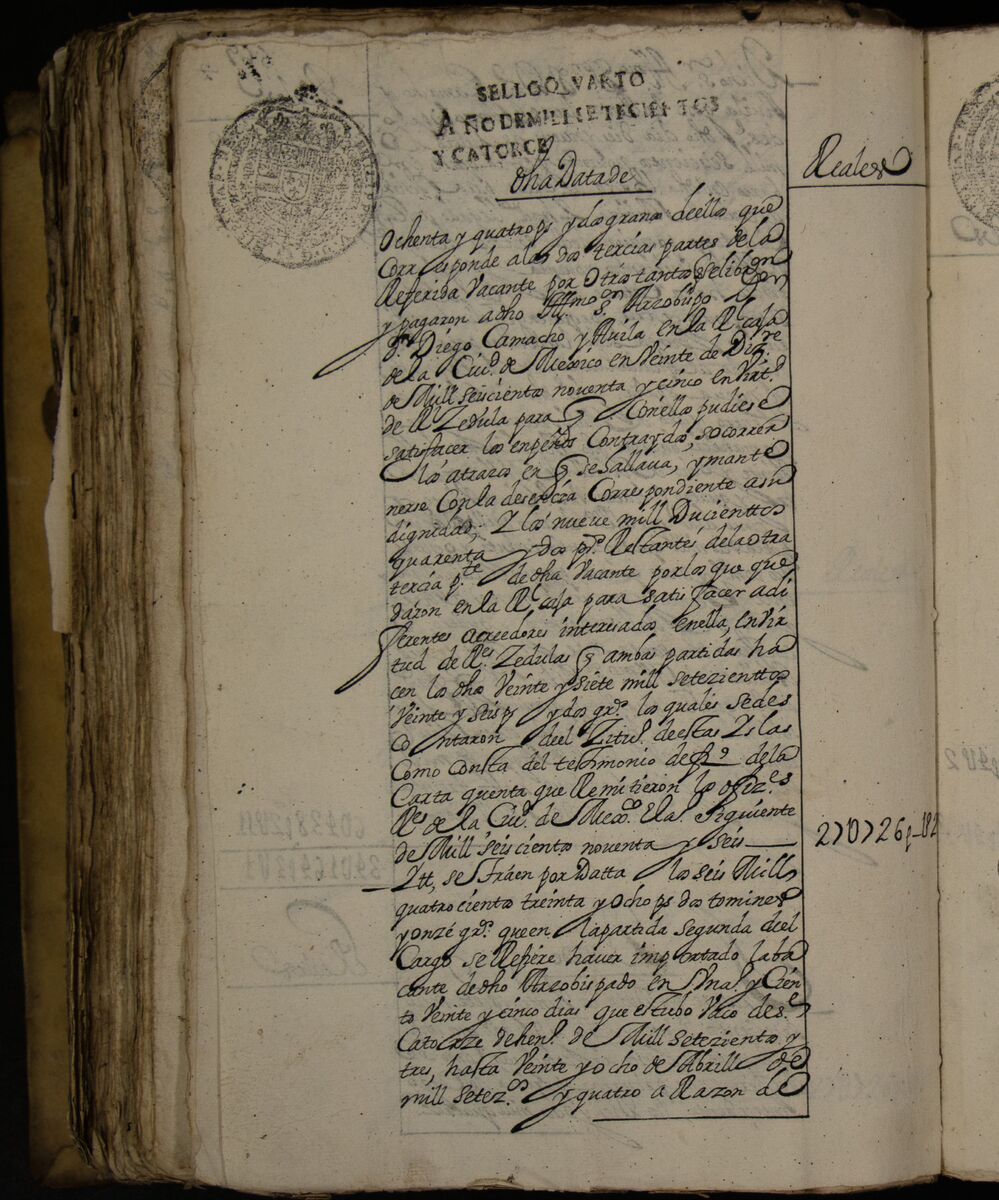 SELLO QVARTO
AÑO DE MIL SETECIENTOS
Y CATORCE
dha Data de
Reales
Ochenta y quatro ps y dos granos de ellos que
Corresponde a las dos tercias partes de la
Referida Vacante por Otros tantos q se libron
y pagaron a dho Illmo Sr Arzobispo
Dn Diego Camacho y Avila en la Rl caja
de la Ciud de Mexico en Veinte de Dizre
de Mill seiscientos noventa y cinco en Virtd
de Rl Zedula para q Con ellos pudiese
satisfacer los enpeños Contraydos, socorrer
los atrazos en q se hallava, y mante
nerse Con la desencia Correspondiente a su
dignidad; Y los nueve mill Ducienttos
quarenta y dos ps Restantes de la otra
tercia pte de dha Vacante por los que que
daron en la Rl caja para satisfacer a di
ferentes acreedores interesados en ella, en Vir
tud de Rs Zedulas q ambas partidas ha
cen los dhos Veinte y siete mill setezienttos
Veinte y seis ps y dos grs los quales se des
Contaron del Situdo de estas Yslas
Como consta del testimonio de la
Carta quenta que Remitieron los ofizs
Rs de la Ciud de Mexco el a Siguiente
de Mill seiscientos noventa y seis
27U726p-U2
Ytt, se traen por Datta los seis Mill
quatrocientos treinta y ocho ps dos tomines
y onze grs que en la partida segunda del
Cargo se Refiere haver importado la ba
cante de dho Arzobispado en Vn a y Cien
to Veinte y cinco dias que estubo Vaco desde
Catorze de heno de Mill setezientos y
tres, hasta Veinte y ocho de Abrill de
mill setezos y quatro a Razon de